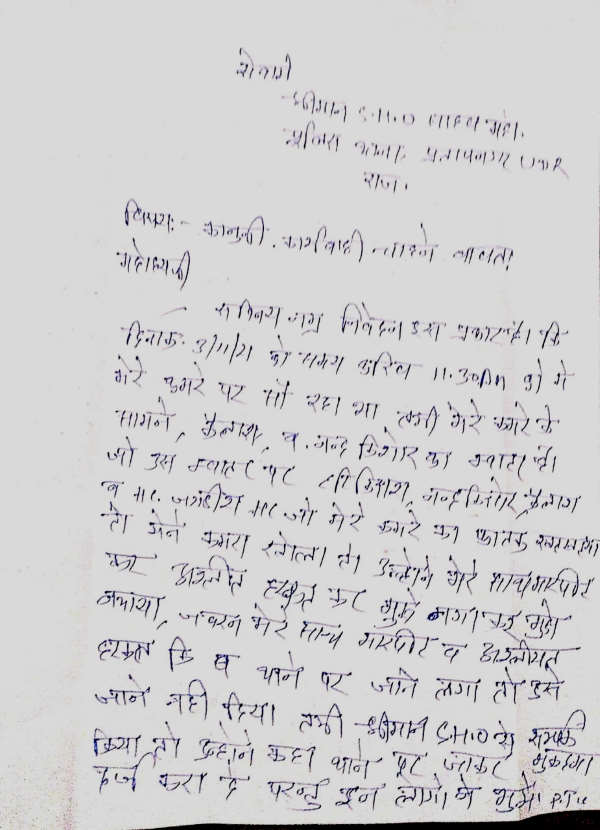 सेवामें
श्रीमान S.H.O साहब महो.
पुलिस थाना, प्रतापनगर UDR
राज.
विषय:- कानुनी. कार्यवाही चाहने बाबत।
महोदयजी
सविनय नम्र निवेदन इस प्रकार है। कि
दिनांक. 3/11/21 को समय करिब 11.30Am को में
मेरे कमरे पर सो रहा था तभी मेरे कमरे के
सामने, कैलाश, व. नन्द किशोर का क्वाटर है।
जो उस क्वाटर पर हरिकिशन, नन्दकिशोर, कैलाश
व HC. जगदीश HC जो मेरे कमरे का फाटक
हो मेने कमरा खोला तो उन्होने मेरे साथ मारपीट
कर अश्लील हरकत कर मुझे नंगा कर मुझे
नचाया, जबरन मेरे साथ मारपीट व अश्लीलत
हरकत कि व थाने पर जाने लगा तो उसे
जाने नही दिया। तभी श्रीमान S.H.O से सम्पर्क
किया, तो उन्होने कहा थाने पर जाकर मुकदमा
दर्ज करा दे परन्तु इन लोगो ने मुझे P.T.O